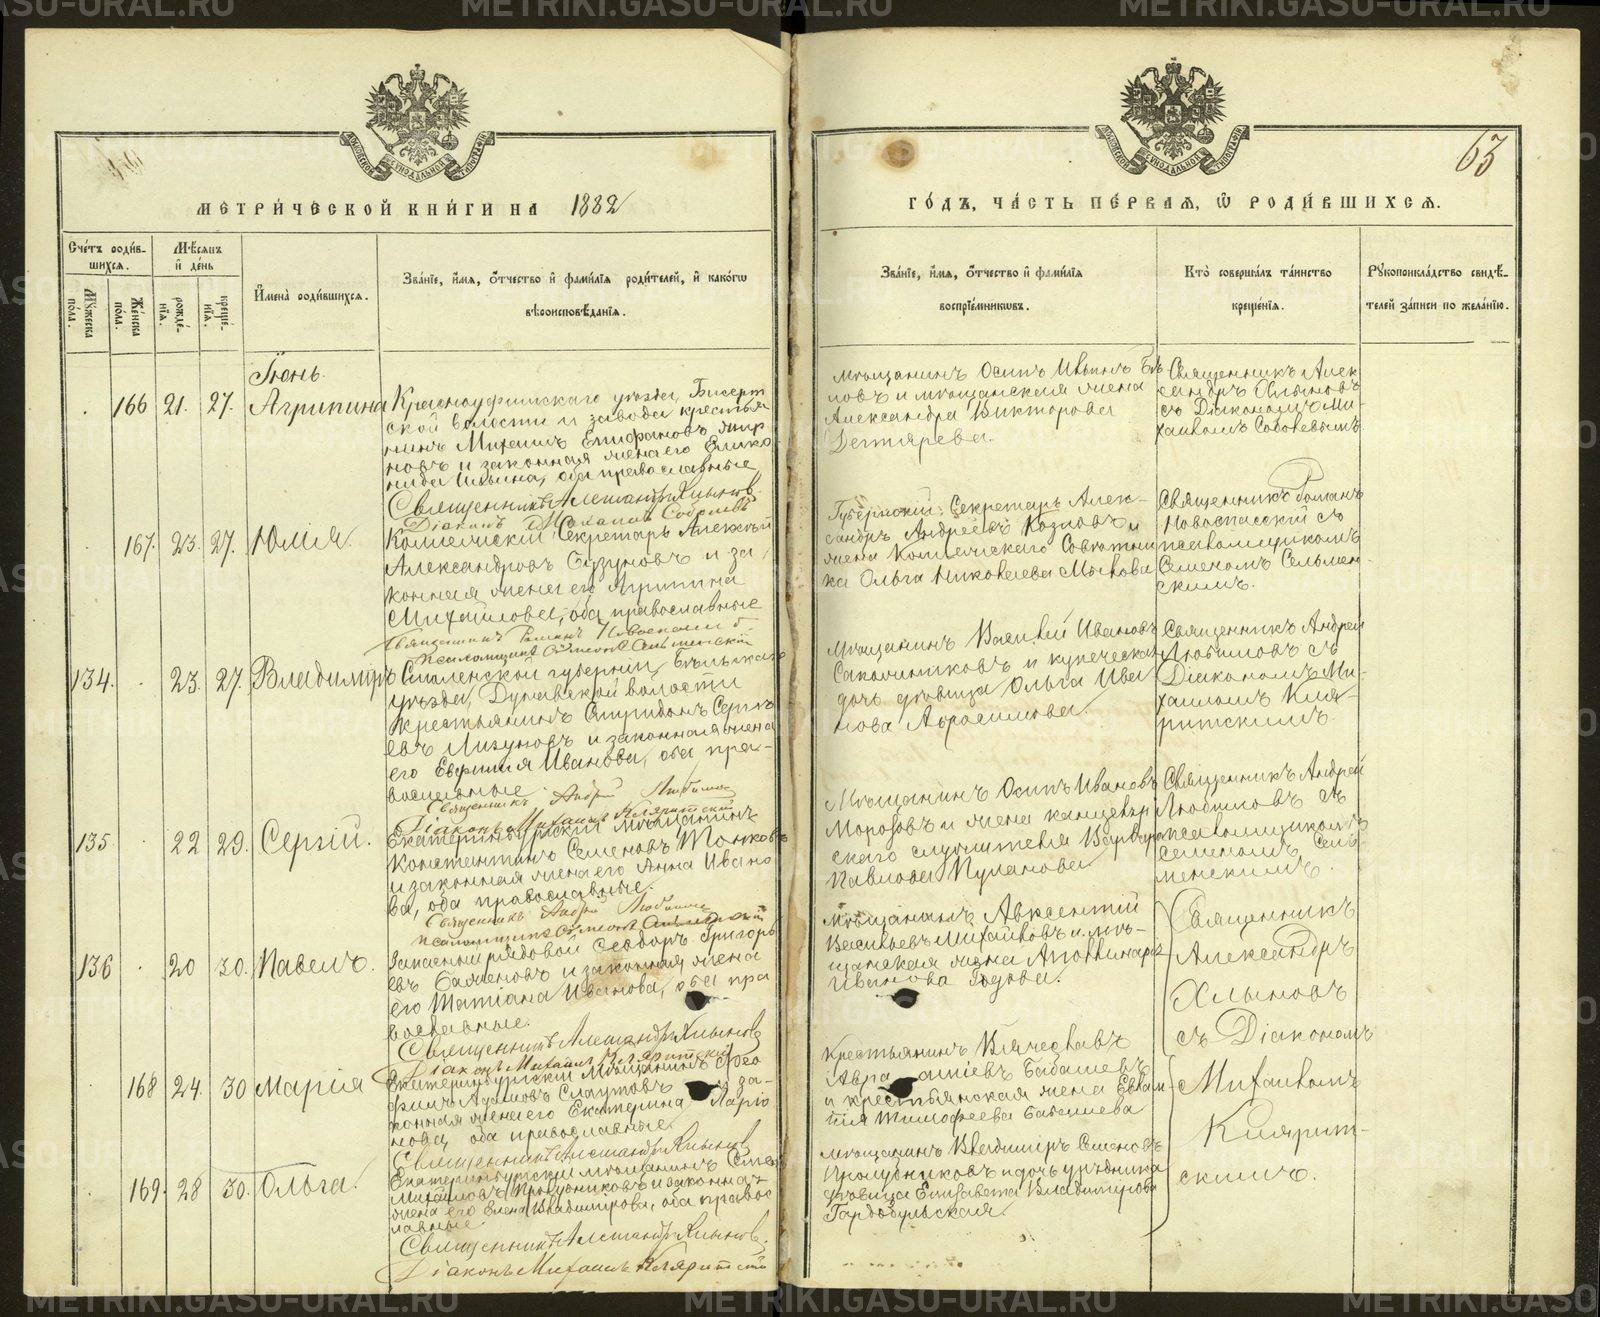 METRIKI.GASU-URAL.RU
63
МЕТРИ́ЧЕСКОЙ КНИ́ГИ НА 1882
ГО́ДЪ, ЧА́СТЬ ПЕ́РВАЯ, Ѡ РОДИ́ВШИХСЯ.
Сче́тъ роди́в-
шихся.
Му́жеска
по́ла.
Же́нска
по́ла.
Мѣсяцъ
и де́нь
рожде́-
нія.
креще́-
нія.
Имена̀ роди́вшихся.
Зва́ніе, и́мя, о́тчество и фами́лія роди́телей, и како́гѡ
вѣроисповѣ́данія.
Зва́ніе, и́мя, о́тчество и фами́лія
воспріе́мниковъ.
Кто̀ соверша́лъ та́инство
креще́нія.
Рукоприкла́дство свидѣ́-
телей за́писи по жела́нію.
Іюнь.
166 21. 27. Агрипина
Красноуфимскаго уѣзда, Бисерт
ской волости и завода крестья
нинъ Михаилъ Епифановъ
новъ и законная жена его
нида Ильина, оба православные
Священникъ Александръ Хлыновъ
Діаконъ Михаилъ Соболевъ
Мѣщанинъ Осипъ Ивановъ
ловъ и мѣщанская жена
Александра Викторова
Дегтярева.
Священникъ Алек
сандръ Хлыновъ
съ Діакономъ Ми-
хаиломъ Соболевымъ.
167. 23. 27. Юлія.
Коллежскій Секретарь Алексѣй
Александровъ Бузуновъ и за
конная жена его Агрипина
Михайлова, оба православные
Священникъ Романъ Новоспасскій
псаломщикъ Симеонъ Сельменскій
Губернскій Секретарь Алек-
сандръ Андреевъ Козловъ и
жена Коллежскаго Совѣтни
ка Ольга Николаева
Священникъ Романъ
Новоспасскій съ
псаломщикомъ
Семеномъ Сельмен
скимъ.
134. 23. 27. Владимиръ
Смоленской губерніи, Бѣльскаго
уѣзда, Дунаевской волости
крестьянинъ Спиридонъ Сергѣ
евъ Лизуновъ и законная жена
его Евфимія Иванова, оба пра-
вославные.
Священникъ Андрей Любимовъ
Діаконъ Михаилъ Кляритскій
Мѣщанинъ Василій Ивановъ
Сапожниковъ и купеческая
дочь дѣвица Ольга Ива
нова Абросимова.
Священникъ Андрей
Любимовъ съ
Діакономъ Ми-
хаиломъ Кля-
ритскимъ.
135 22 29. Сергій.
Екатеринбургскій мѣщанинъ
Константинъ Семеновъ Топковъ
и законная жена его Анна Ивано
ва, оба православные.
Священникъ Андрей Любимовъ
псаломщикъ Симеонъ Сельменскій
Мѣщанинъ Осипъ Ивановъ
Морозовъ и жена канцеляр
скаго служителя Варвара
Павлова Пупанова
Священникъ Андрей
Любимовъ съ
псаломщикомъ
Семеномъ Сель-
менскимъ.
136 20 30. Павелъ.
Запасный рядовой Ѳеодоръ Григорь
евъ Баженовъ и законная жена
его Татіана Иванова, оба пра
вославные.
Священникъ Александръ Хлыновъ
Діаконъ Михаилъ Кляритскій
Мѣщанинъ Авксентій
Васильевъ Михайловъ и мѣ-
щанская жена Аполлинарія
Иванова Гудова.
Священникъ
Александръ
Хлыновъ
съ Діакономъ
Михаиломъ
Кляритт-
скимъ.
168 24. 30 Марія
Екатеринбургскій мѣщанинъ Ѳео
филъ Адамовъ Слаутовъ и за-
конная жена его Екатерина Ларіо
нова, оба православные.
Священникъ Александръ Хлыновъ
Крестьянинъ Вячеславъ
Бабашевъ
и крестьянская жена Евлам-
пія Тимофеева Бабашева
169. 28 30. Ольга.
Екатеринбургскій мѣщанинъ
Михайловъ Прорубниковъ и законная
жена его Елена Владимирова, оба правос
лавные
Священникъ Александръ Хлыновъ.
Діаконъ Михаилъ Кляритскій
Мѣщанинъ Владимиръ Семеновъ
Прорубниковъ и дочь урядника
дѣвица Елизавета Владимирова